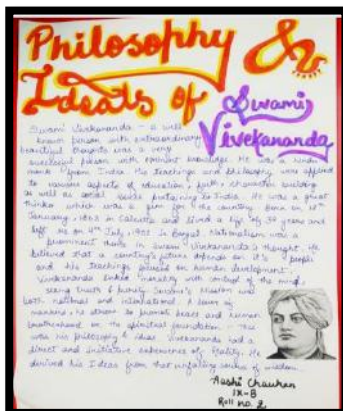 Philosophy &
Ideals of Swami
Vivekananda
Swami Vivekananda - a well
known person with extraordinary
beautiful thoughts was a very
successful person with eminent knowledge. He was a hindu
monk from India. His teachings and philosophy were applied
to various aspects of education, faith, character building
as well as social issues pertaining to India. He was a great
thinker which was a gem for the country. Born on 12th
January, 1863 in Calcutta and lived a life of 39 years and
left us on 4th July, 1902 in Bengal. Nationalism was a
prominent theme in Swami Vivekananda's thought. He
believed that a country's future depends on it's people
and his teachings focused on human development.
Vivekananda linked morality with control of the mind,
seeing truth & purity. Swami's mission was
both national and international. A lover of
mankind, he strove to promote peace and human
brotherhood on the spiritual foundation - this
was his philosophy & ideas. Vivekananda had a
direct and initiative experience of reality. He
derived his Ideas from that unfailing source of wisdom.
Aashi Chauhan
IX-B
Roll no. 2